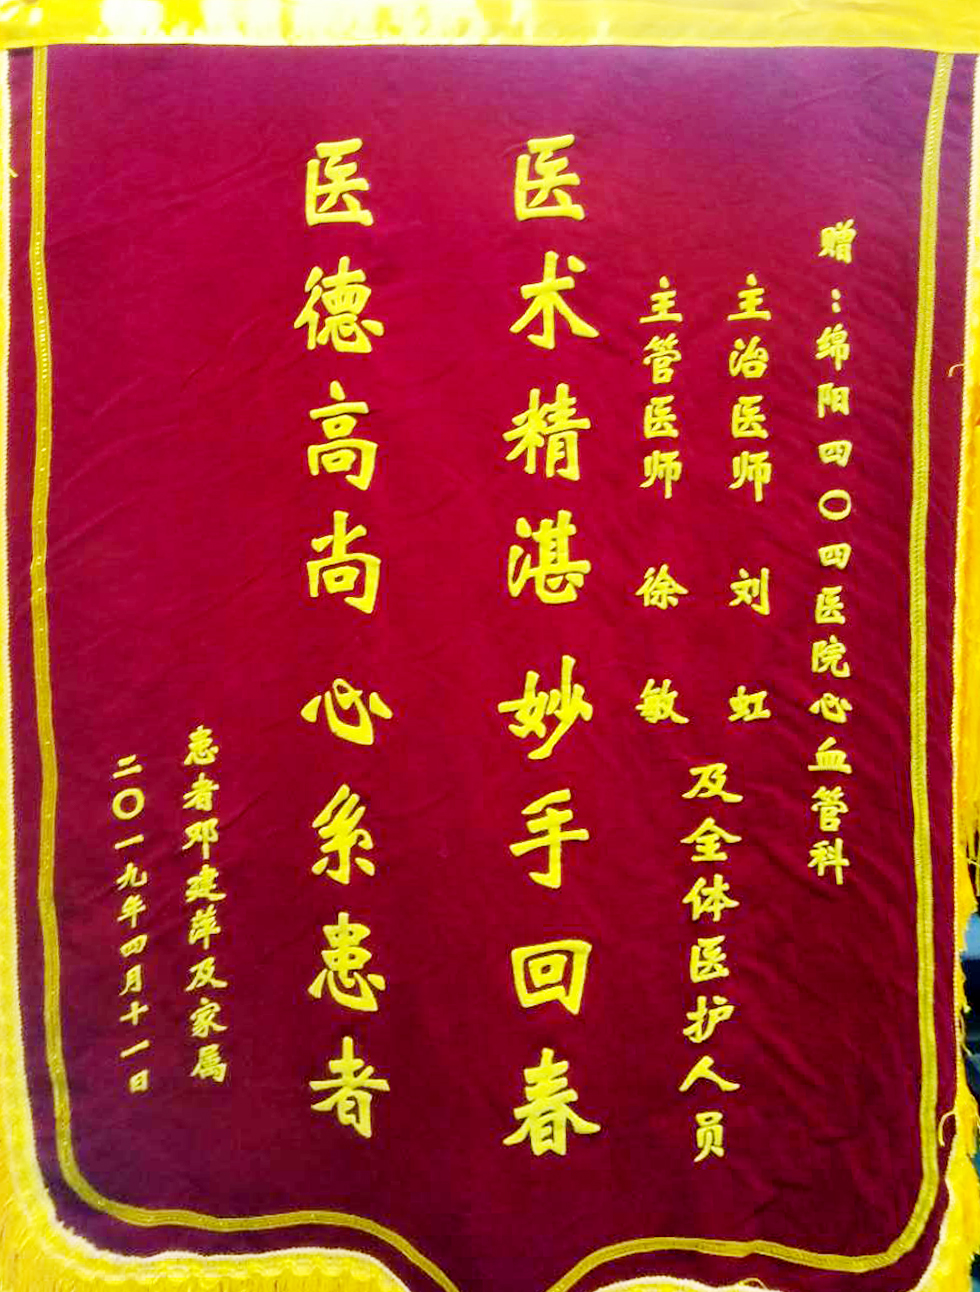 赠：绵阳四〇四医院心血管科
主治医师 刘虹
主管医师 徐敏
及全体医护人员
医术精湛妙手回春
医德高尚心系患者
患者邓建萍及家属
二〇一九年四月十一日